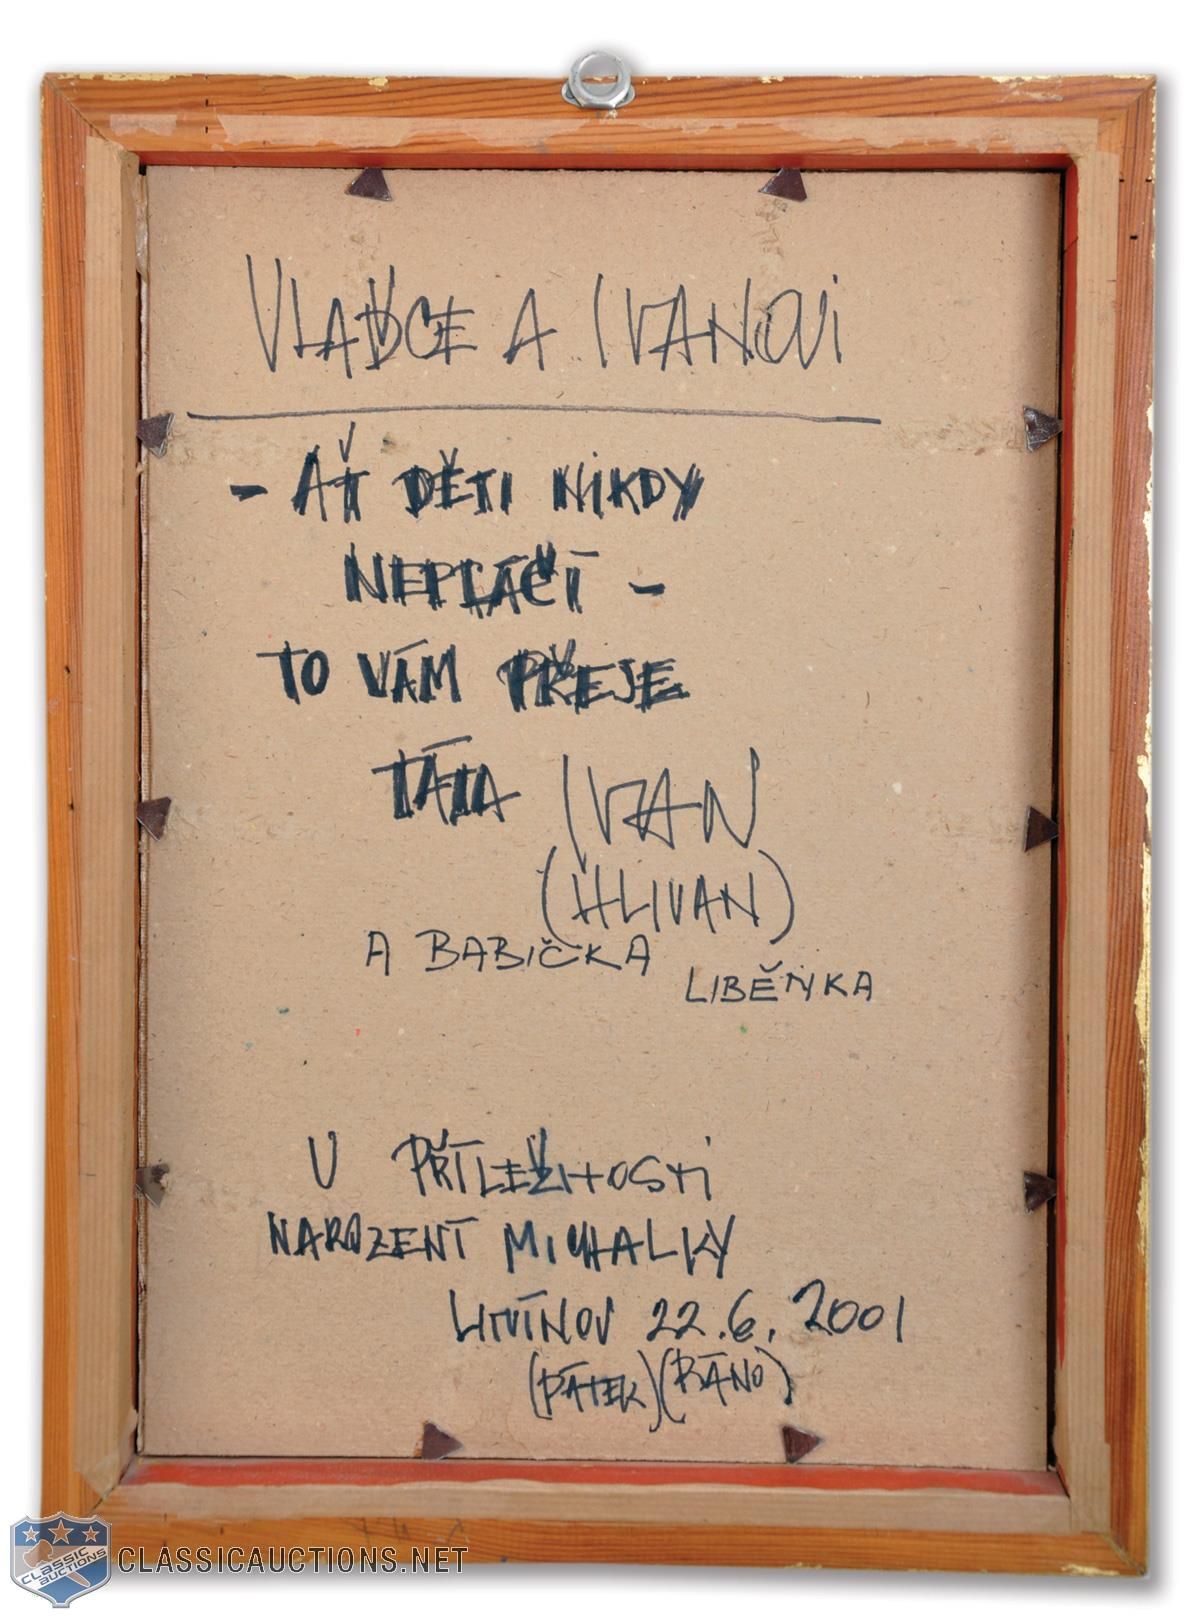 VLAĎCE A IVANOVI
- AŤ DĚTI NIKDY
NEPLÁČÍ -
TO VÁM PŘEJE
TÁTA IVAN
(HLIVAN)
A BABIČKA
LIBĚNKA
U PŘÍLEŽITOSTI
NAROZENÍ MICHALKY
LITVÍNOV 22.6.2001
(PÁTEK)(RÁNO)
CLASSIC AUCTIONS
CLASSICAUCTIONS.NET